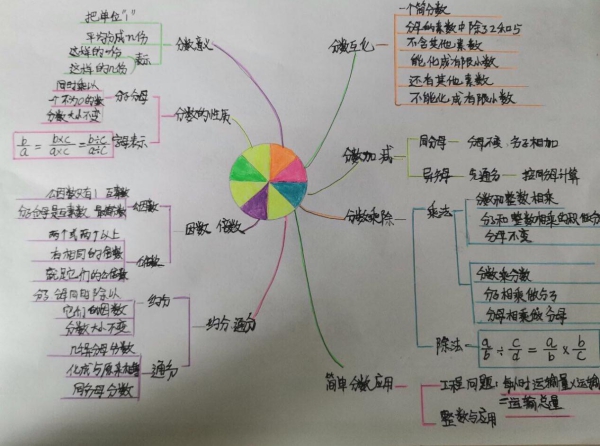 把单位"1"
平均分成几份
这样的一份
这样的几份
表示
分数意义
同时乘以
一个不为0的数
分数大小不变
分子分母
b/a = b×c/a×c = b÷c/a÷c
字母表示
分数的性质
公因数只有1 互素数
公因数
两个或两个以上
有相同的倍数
就是它们的公倍数
公倍数
因数 倍数
分子 分母同除以
它们的因数
分数大小不变
约分
几个异分母分数
同分母分数
通分
约分 通分
一个简分数
分母的素数中除了2和5
不含其他素数
能化成有限小数
还有其他素数
不能化成有限小数
分数互化
分数加减
同分母
分母不变
分子相加
异分母
先通分
按同分母计算
分数乘除
乘法
分数和整数相乘
分母不变
分数乘分数
分子相乘做分子
分母相乘做分母
除法
a/b ÷ c/d = a/b × b/c
简单分数应用
工程问题:
每小时运输量×运输
=运输总量
整数与应用